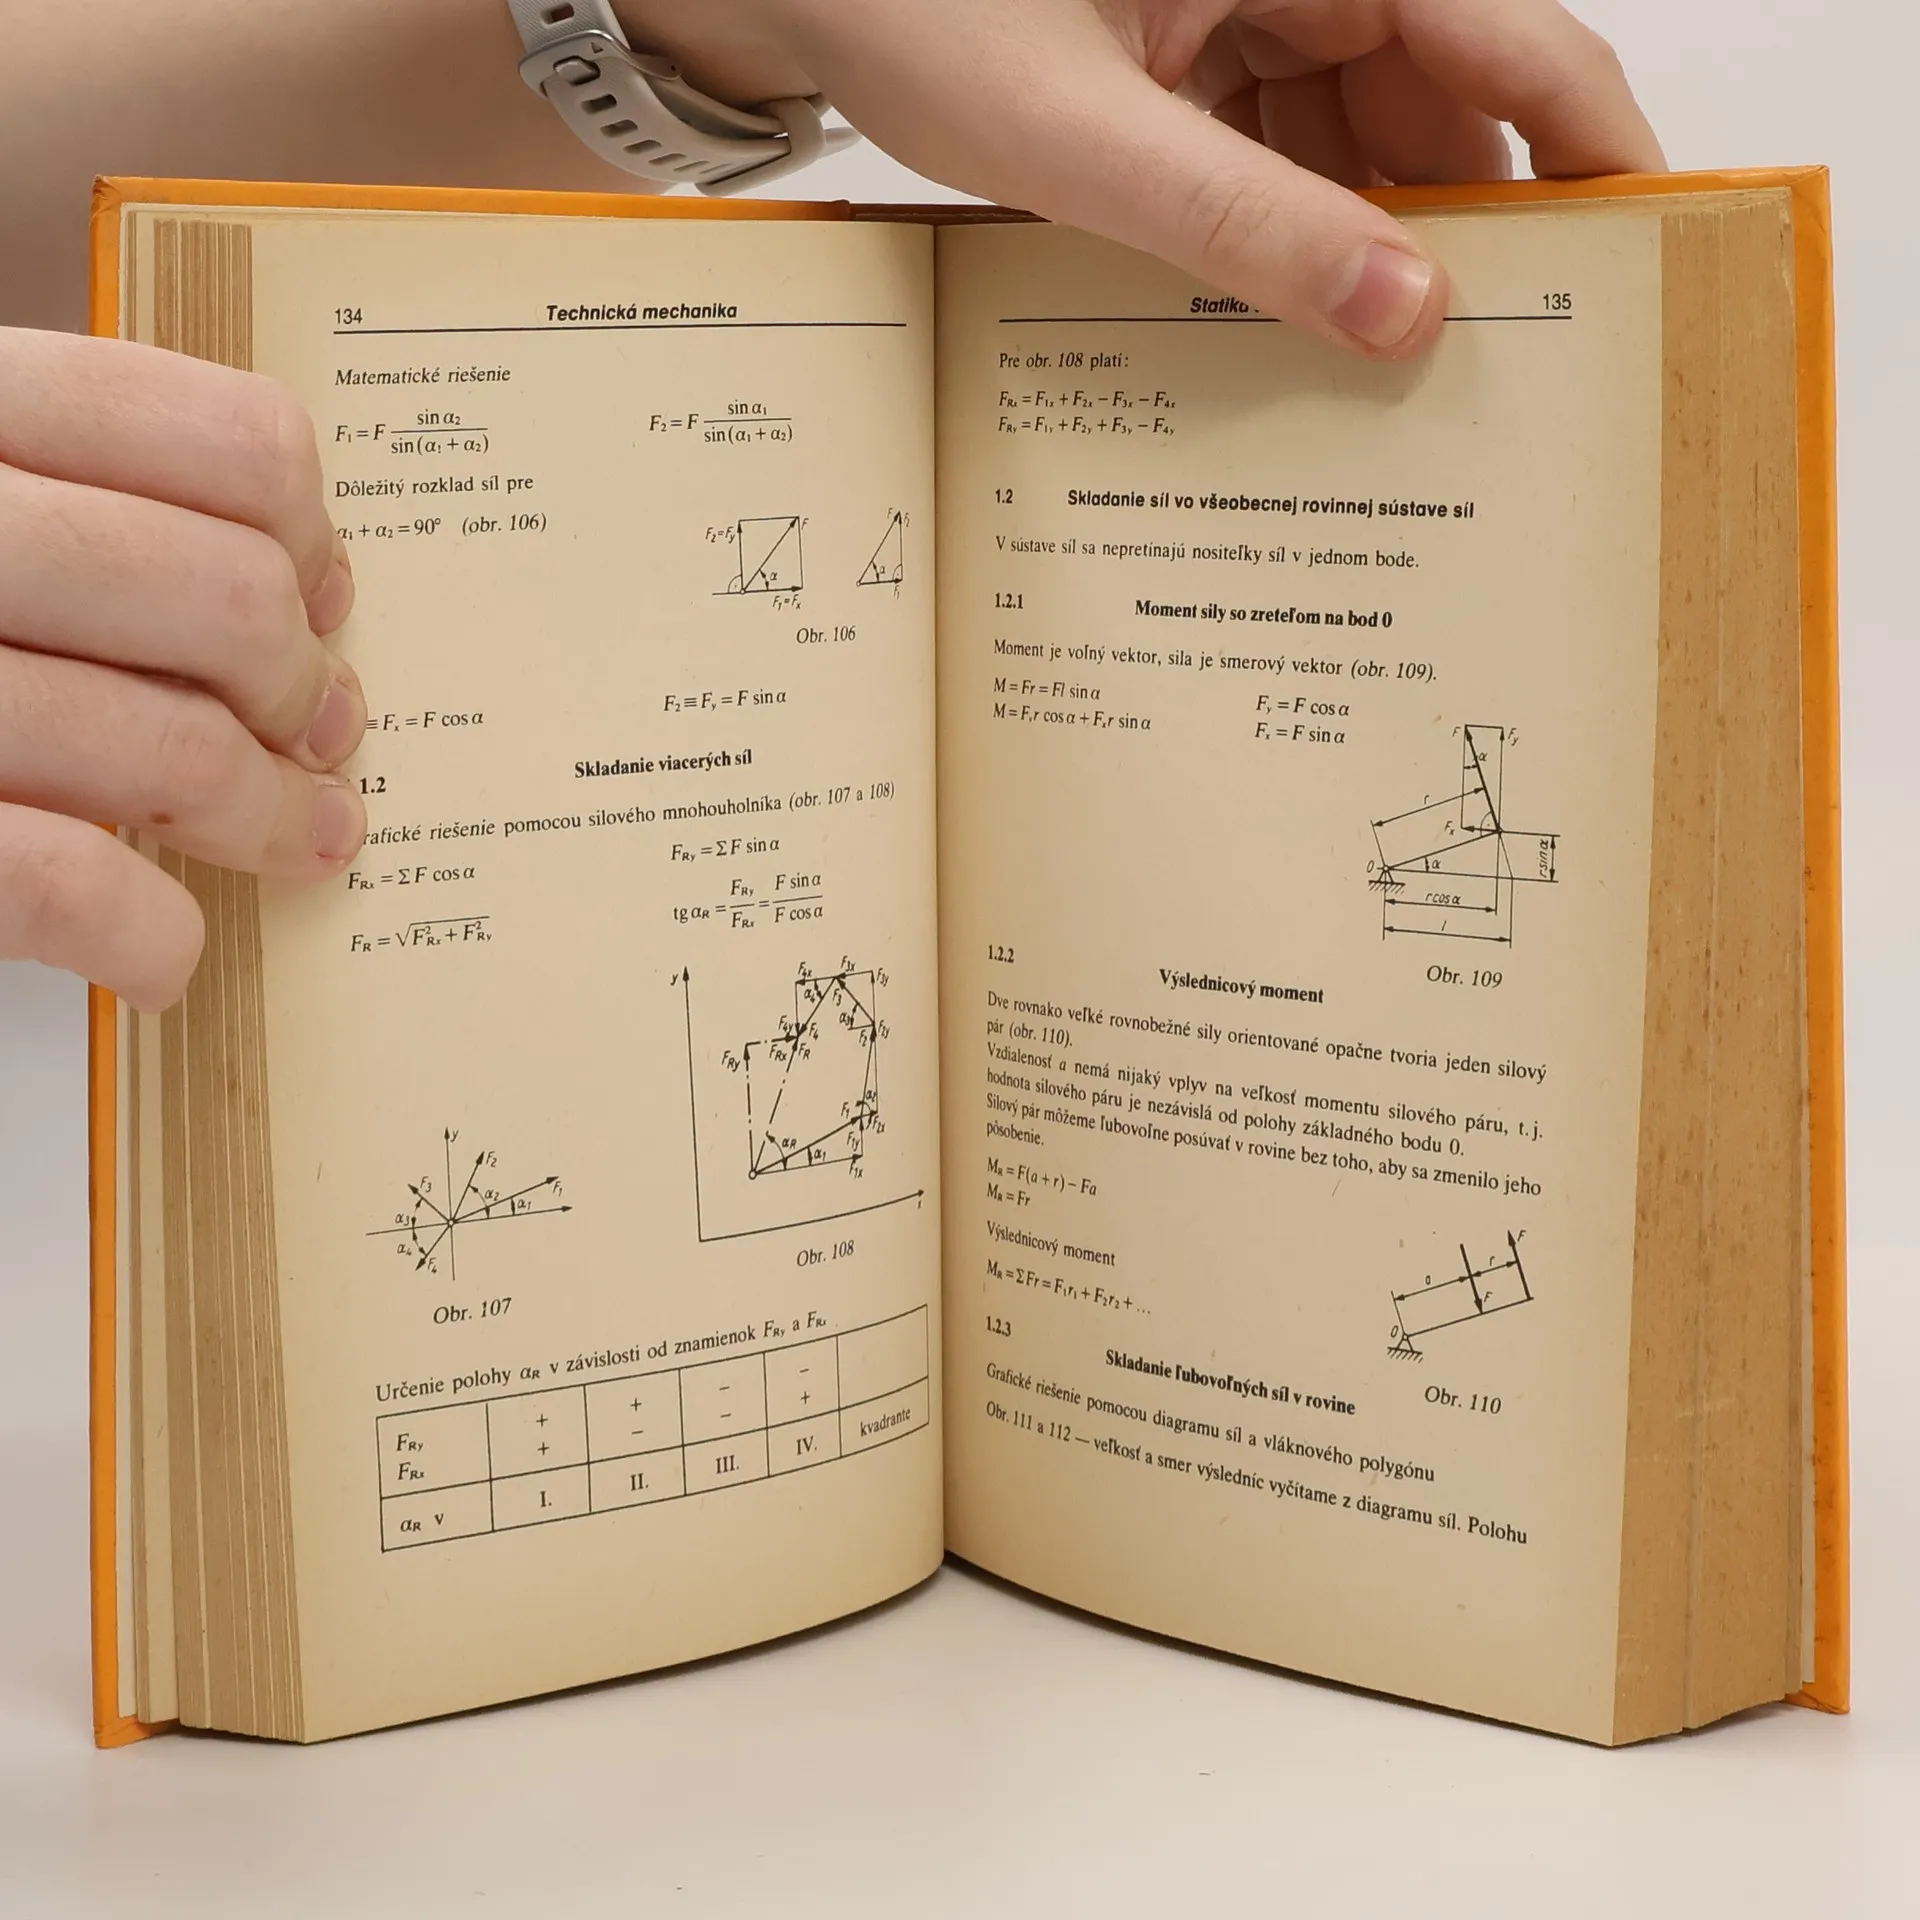 134 Technická mechanika
Matematické riešenie
F₁ = F sin α₂ / sin (α₁ + α₂) F₂ = F sin α₁ / sin (α₁ + α₂)
Dôležitý rozklad síl pre
α₁ + α₂ = 90° (obr. 106)
F₂=Fy F α F₁=Fx F F₂ α F₁
Obr. 106
≡ Fx = F cos α F₂ ≡ Fy = F sin α
1.2 Skladanie viacerých síl
rafické riešenie pomocou silového mnohouholníka (obr. 107 a 108)
FRx = Σ F cos α FRy = Σ F sin α
FR = √F²Rx + F²Ry tg αR = FRy / FRx = F sin α / F cos α
y F₁ F₂ F₃ F₄ α₁ α₂ α₃ α₄
Obr. 107
y F4x F3x F3y α₄ F₃ α₃ F4y F₄ F₂ F2y FRy FRx FR F₁ α₂ F2x F1y αR α₁ F1x x
Obr. 108
Určenie polohy αR v závislosti od znamienok FRy a FRx
FRy + + − −
FRx + − − +
αR v I. II. III. IV. kvadrante
135
Pre obr. 108 platí:
FRx = F1x + F2x − F3x − F4x
FRy = F1y + F2y + F3y − F4y
1.2 Skladanie síl vo všeobecnej rovinnej sústave síl
V sústave síl sa nepretínajú nositeľky síl v jednom bode.
1.2.1 Moment sily so zreteľom na bod 0
Moment je voľný vektor, sila je smerový vektor (obr. 109).
M = Fr = Fl sin α Fy = F cos α
M = Fyr cos α + Fxr sin α Fx = F sin α
F Fy α r Fx 0 α r sin α r cos α l
Obr. 109
1.2.2 Výslednicový moment
Dve rovnako veľké rovnobežné sily orientované opačne tvoria jeden silový
pár (obr. 110).
Vzdialenosť a nemá nijaký vplyv na veľkosť momentu silového páru, t. j.
hodnota silového páru je nezávislá od polohy základného bodu 0.
Silový pár môžeme ľubovoľne posúvať v rovine bez toho, aby sa zmenilo jeho
pôsobenie.
MR = F(a + r) − Fa
MR = Fr
Výslednicový moment
MR = Σ Fr = F₁r₁ + F₂r₂ + ...
F r a F 0
Obr. 110
1.2.3 Skladanie ľubovoľných síl v rovine
Grafické riešenie pomocou diagramu síl a vláknového polygónu
Obr. 111 a 112 — veľkosť a smer výsledníc vyčítame z diagramu síl. Polohu